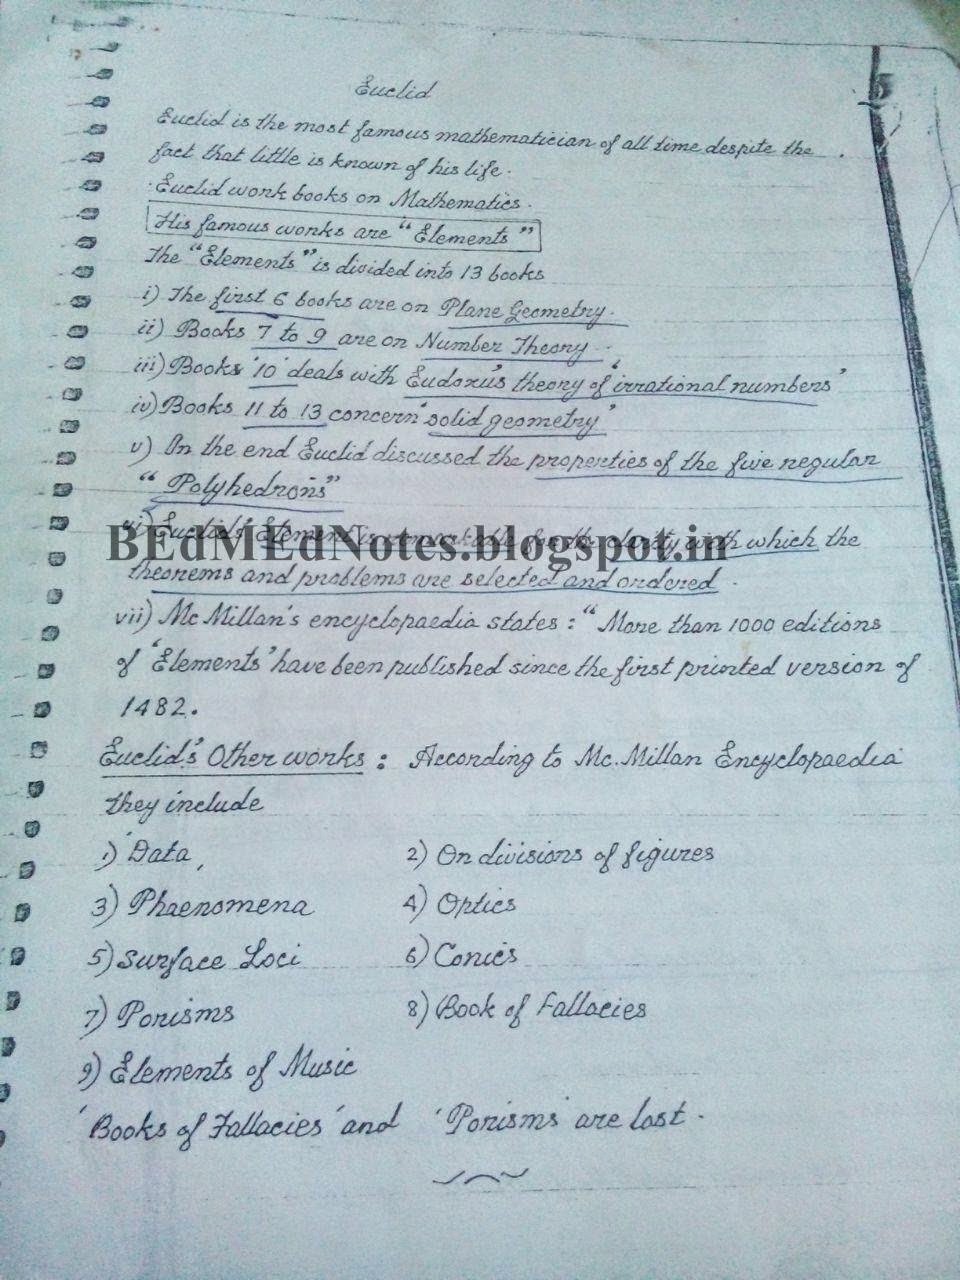 5
Euclid
Euclid is the most famous mathematician of all time despite the
fact that little is known of his life.
Euclid work books on Mathematics.
His famous works are "Elements"
The "Elements" is divided into 13 books
i) The first 6 books are on Plane Geometry.
ii) Books 7 to 9 are on Number Theory.
iii) Books '10' deals with Eudoxu's theory of 'irrational numbers'
iv) Books 11 to 13 concern 'solid geometry'
v) In the end Euclid discussed the properties of the five regular
"Polyhedrons"
vi) Euclid's 'Element' is remarkable for the clarity with which the
BEdMEdNotes.blogspot.in
theorems and problems are selected and ordered.
vii) Mc Millan's encyclopaedia states: "More than 1000 editions
of 'Elements' have been published since the first printed version of
1482.
Euclid's Other works: According to Mc. Millan Encyclopaedia
they include
1) Data, 2) On divisions of figures
3) Phaenomena 4) Optics
5) Surface Loci 6) Conics
7) Porisms 8) Book of Fallacies
9) Elements of Music
'Books of Fallacies' and 'Porisms' are lost.